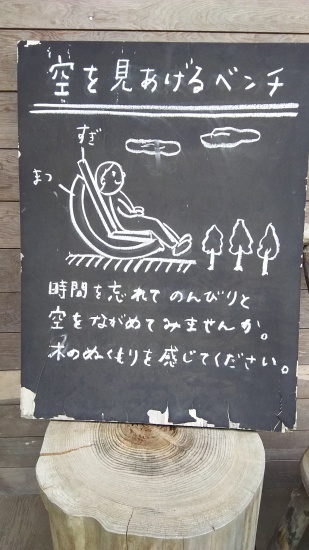 空を見あげるベンチ
すぎ
まつ
時間を忘れてのんびりと
空をながめてみませんか。
木のぬくもりを感じてください。